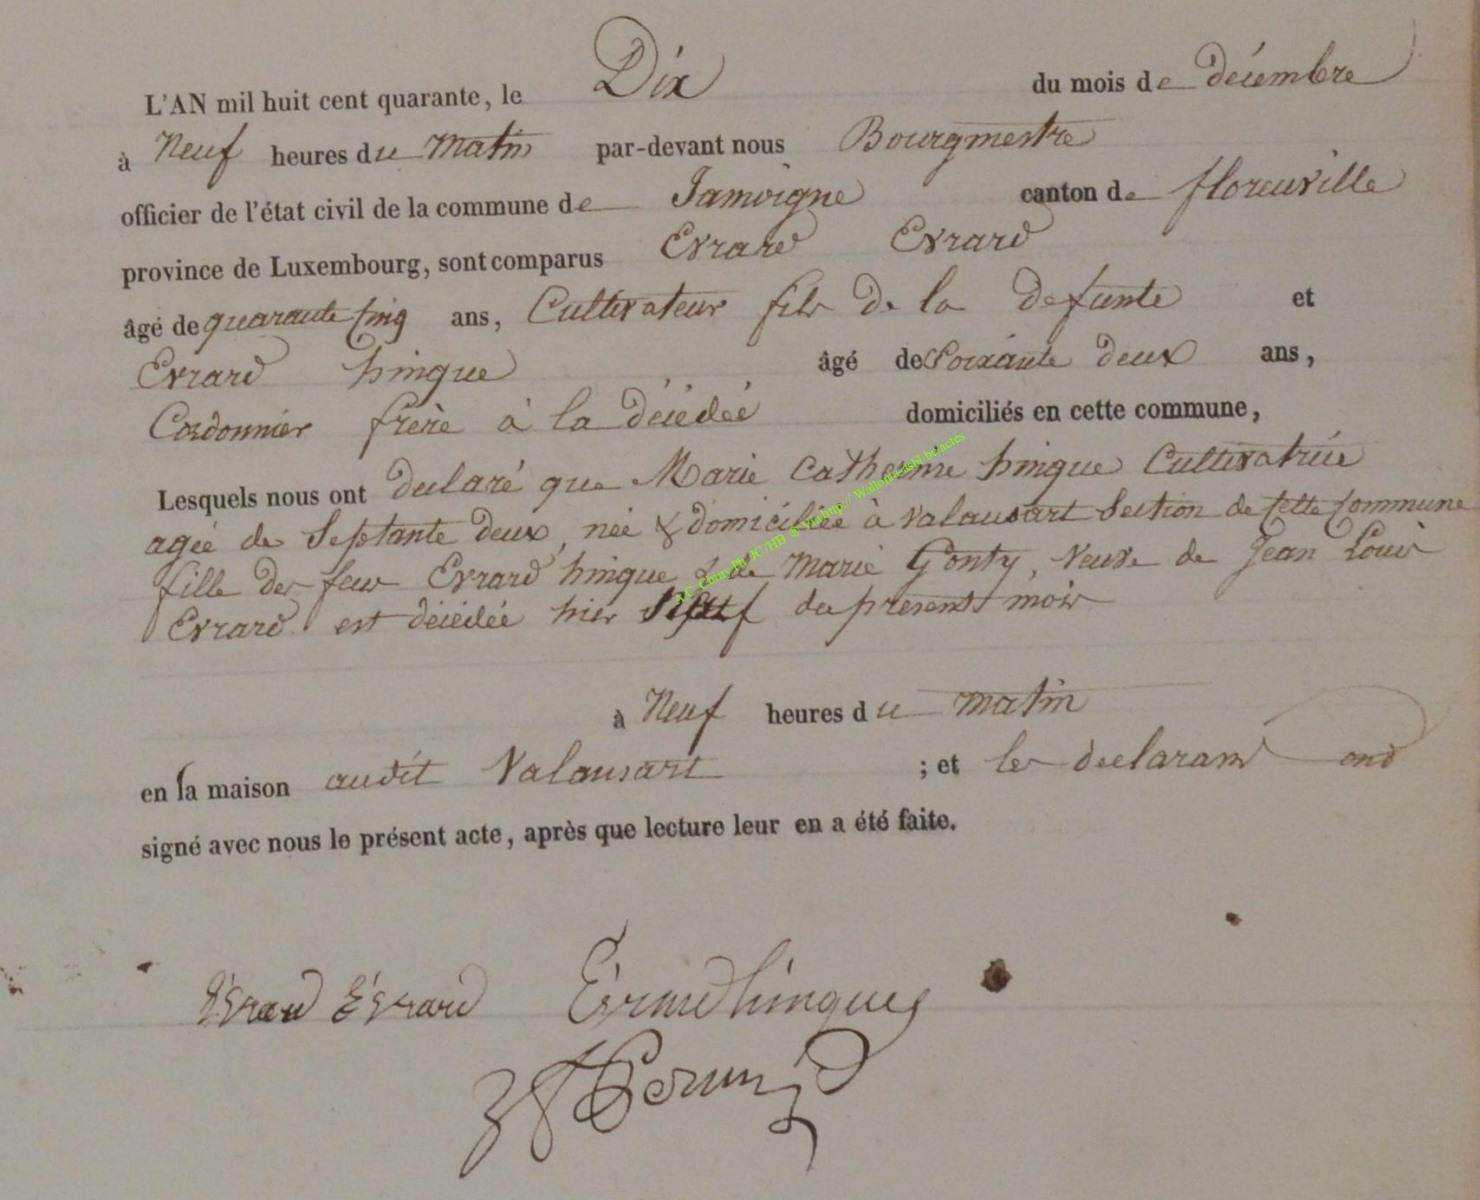 L'AN mil huit cent quarante, le Dix du mois de décembre
à Neuf heures du matin par-devant nous Bourgmestre
officier de l'état civil de la commune de Jamoigne canton de florenville
province de Luxembourg, sont comparus Evrard Evrard
âgé de quarante Cinq ans, Cultivateur fils de la defunte et
Evrard hinque âgé de Soixante deux ans,
Cordonnier frère à la décédée domiciliés en cette commune,
Lesquels nous ont declaré que Marie Catherine hinque Cultivatrice
agée de Septante deux, née & domiciliée à valansart Section de cette Commune
fille des feux Evrard hinque & de Marie Gonty, Veuve de Jean Louis
Evrard est décédée hier Neuf du présent mois
à Neuf heures du matin
en la maison audit Valansart ; et les declarans ond
signé avec nous le présent acte, après que lecture leur en a été faite.
Evrard Evrard Evrard hinque